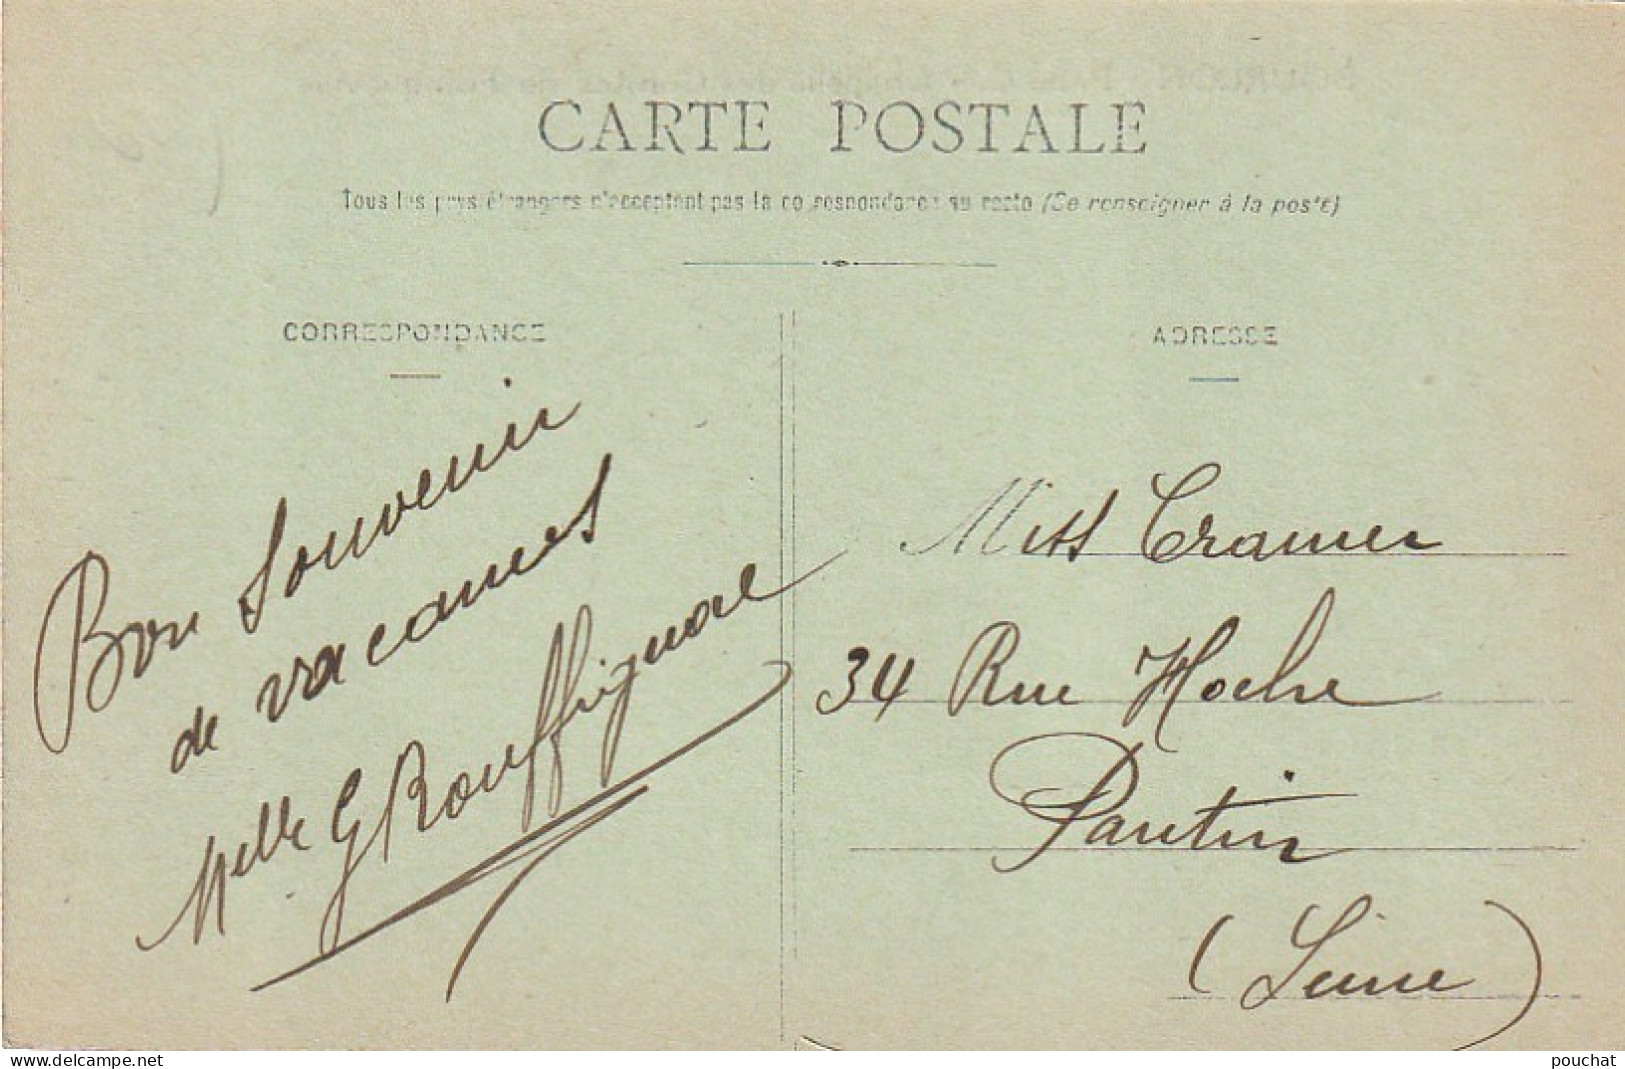 CARTE POSTALE
Tous les pays étrangers n'acceptent pas la correspondance au recto (Se renseigner à la poste)
CORRESPONDANCE
ADRESSE
Bon Souvenir
de vacances
Melle G Rouffignac
Miss Cramer
34 Rue Hoche
Pantin
(Seine)
www.delcampe.net
pouchat